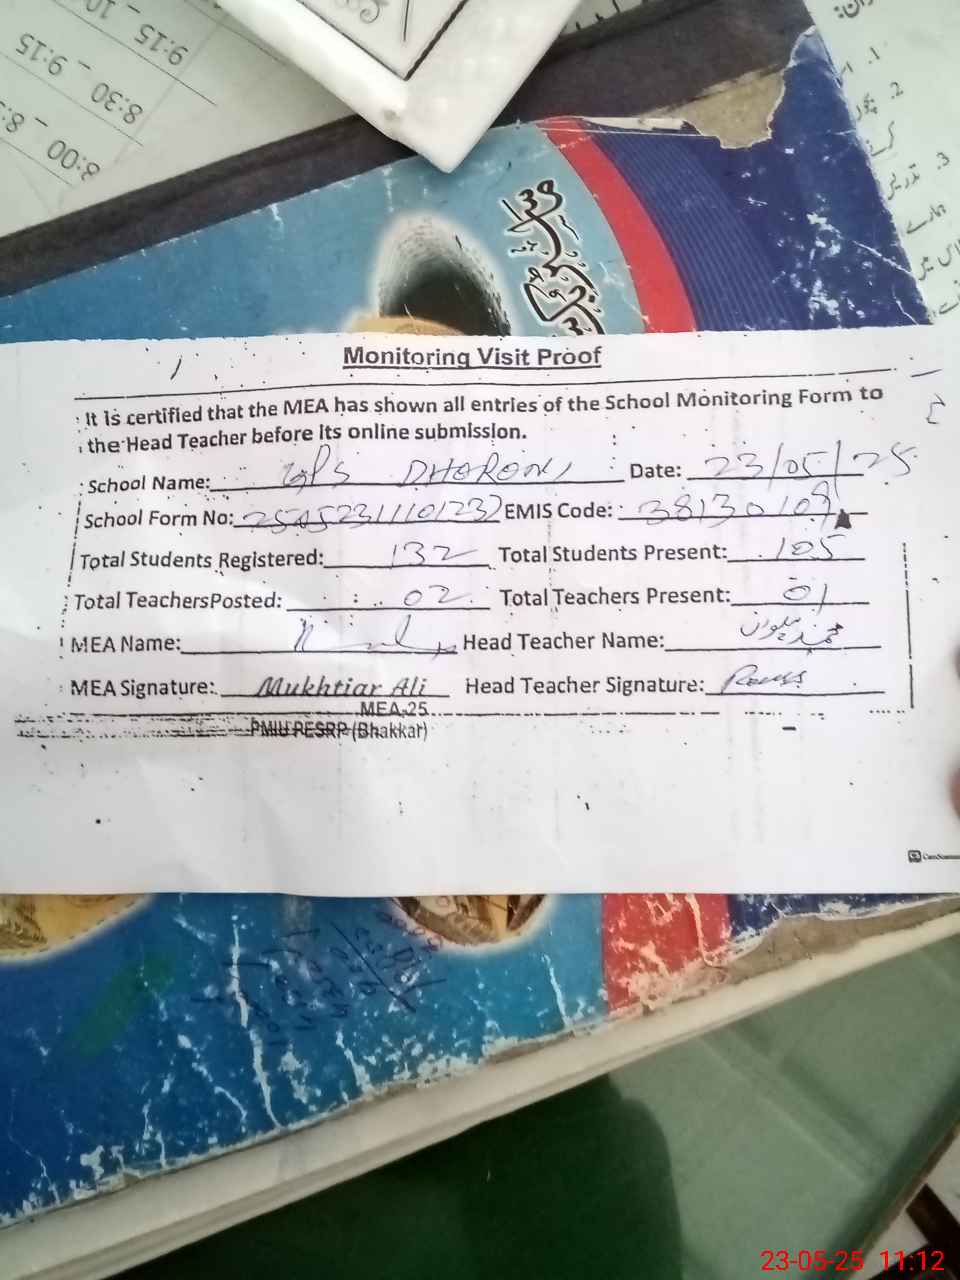 9:15 - 10
8:30 - 9:15
8:00 - 8:
1.
2.
3.
Monitoring Visit Proof
It is certified that the MEA has shown all entries of the School Monitoring Form to
the Head Teacher before its online submission.
School Name: GPS DHORON Date: 23/05/25
School Form No: EMIS Code: 38130109
Total Students Registered: 132 Total Students Present: 105
Total TeachersPosted: 02 Total Teachers Present: 01
MEA Name: Head Teacher Name:
MEA Signature: Mukhtiar Ali Head Teacher Signature:
MEA-25
PMIU PESRP (Bhakkar)
CS CamScanner
23-05-25 11:12